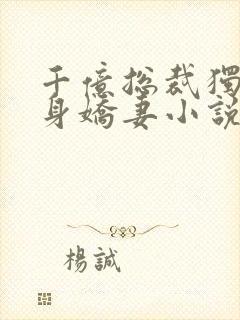 千億总裁獨
身嬌妻小説
楊誠